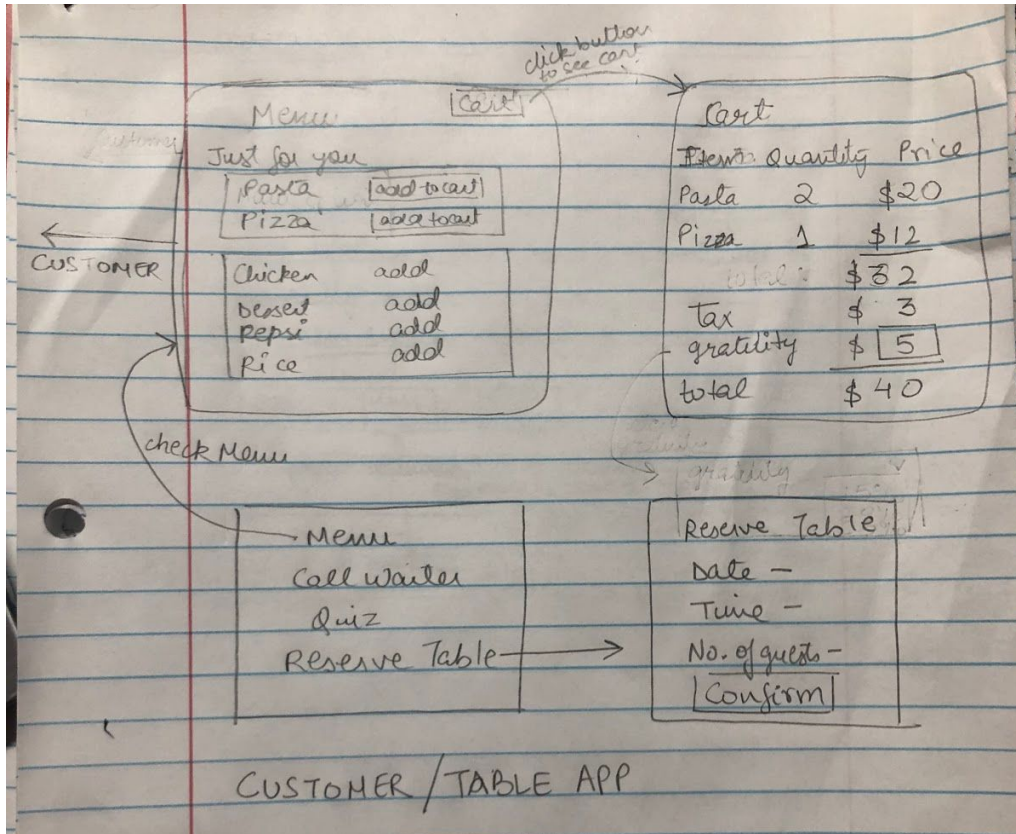 click button
to see cart
Menu
Cart
Just for you
Pasta add to cart
Pizza add to cart
Chicken add
Dessert add
Pepsi add
Rice add
CUSTOMER
Cart
Item Quantity Price
Pasta 2 $20
Pizza 1 $12
total: $32
Tax $ 3
gratility $ 5
total $40
gratuity
check Menu
Menu
Call Waiter
Quiz
Reserve Table
Reserve Table
Date -
Time -
No. of guests -
Confirm
CUSTOMER/TABLE APP